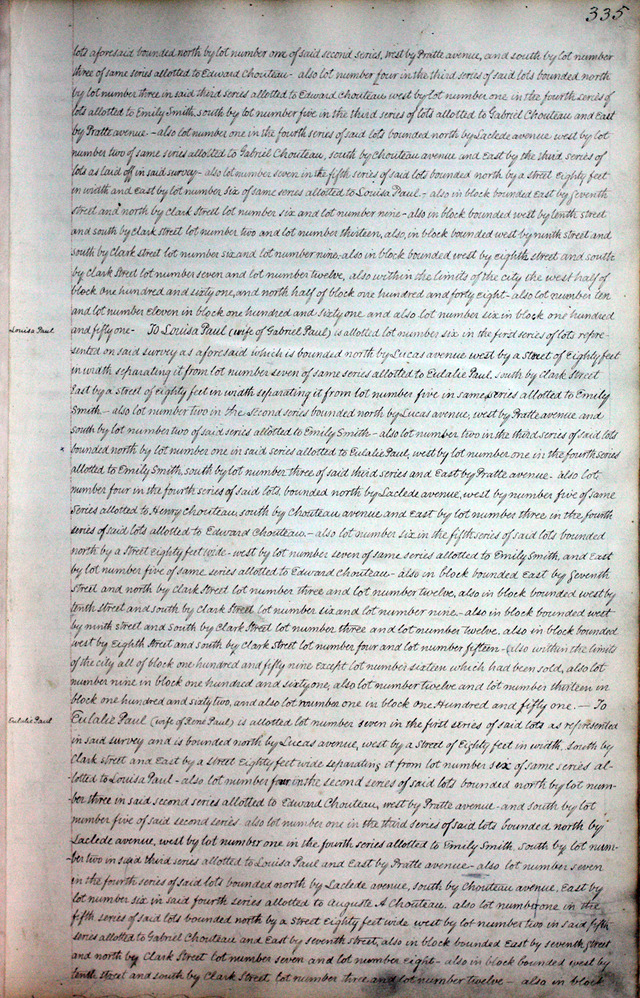 335
lots aforesaid bounded north by lot number one of said second series, west by Pratte avenue, and south by lot number
three of same series allotted to Edward Chouteau - also lot number four in the third series of said lots bounded north
by lot number three in said third series allotted to Edward Chouteau west by lot number one in the fourth series of
lots allotted to Emily Smith, south by lot number five in the third series of lots allotted to Gabriel Chouteau and East
by Pratte avenue. - also lot number one in the fourth series of said lots bounded north by Laclede avenue west by lot
number two of same series allotted to Gabriel Chouteau, south by Chouteau avenue and East by the third series of
lots as laid off in said survey - also lot number seven in the fifth series of said lots bounded north by a street Eighty feet
in width and East by lot number six of same series allotted to Louisa Paul. - also in block bounded East by Seventh
street and north by Clark Street lot number six and lot number nine - also in block bounded west by tenth street
and south by Clark street lot number two and lot number thirteen, also, in block bounded west by ninth street and
south by Clark street lot number six and lot number nine - also in block bounded west by eighth street and south
by Clark Street lot number seven and lot number twelve, also within the limits of the city the west half of
block one hundred and sixty one, and north half of block one hundred and forty eight - also lot number ten
and lot number eleven in block one hundred and sixty one and also lot number six in block one hundred
Louisa Paul
and fifty one - To Louisa Paul (wife of Gabriel Paul) is allotted lot number six in the first series of lots repre-
sented on said survey as aforesaid which is bounded north by Lucas avenue west by a street of Eighty feet
in width separating it from lot number seven of same series allotted to Eulalie Paul, south by Clark Street
East by a street of eighty feet in width separating it from lot number five in same series allotted to Emily
Smith. - also lot number two in the second series bounded north by Lucas avenue, west by Pratte avenue and
south by lot number two of said series allotted to Emily Smith - also lot number two in the third series of said lots
x bounded north by lot number one in said series allotted to Eulalie Paul, west by lot number one in the fourth series
allotted to Emily Smith south by lot number three of said third series and East by Pratte avenue - also lot
number four in the fourth series of said lots, bounded north by Laclede avenue, west by number five of same
series allotted to Henry Chouteau, south by Chouteau avenue and East by lot number three in the fourth
series of said lots allotted to Edward Chouteau. - also lot number six in the fifth series of said lots bounded
north by a street Eighty feet wide - west by lot number seven of same series allotted to Emily Smith, and East
by lot number five of same series allotted to Edward Chouteau - also in block bounded East by Seventh
street and north by Clark Street lot number three and lot number twelve, also in block bounded west by
tenth street and south by Clark Street lot number six and lot number nine. - also in block bounded west
by ninth street and south by Clark Street lot number three and lot number Twelve. also in block bounded
west by Eighth Street and south by Clark Street lot number four and lot number fifteen - also within the limits
of the city all of block one hundred and fifty nine Except lot number sixteen which had been sold, also lot
number nine in block one hundred and sixty one, also lot number twelve and lot number thirteen in
block one hundred and sixty two, and also lot number one in block one Hundred and fifty one. - To
Eulalie Paul
Eulalie Paul (wife of René Paul) is allotted lot number seven in the first series of said lots as represented
in said survey and is bounded north by Lucas avenue, west by a street of Eighty feet in width, south by
Clark street and East by a street Eighty feet wide separating it from lot number six of same series al-
-lotted to Louisa Paul - also lot number four in the second series of said lots bounded north by lot num-
-ber three in said second series allotted to Edward Chouteau, west by Pratte avenue - and south by lot
number five of said second series also lot number one in the third series of said lots bounded north by
Laclede avenue, west by lot number one in the fourth series allotted to Emily Smith, south by lot num-
-ber two in said third series allotted to Louisa Paul and East by Pratte avenue - also lot number seven
in the fourth series of said lots bounded north by Laclede avenue, south by Chouteau avenue, East by
lot number six in said fourth series allotted to Auguste A Chouteau. also lot number one in the
fifth series of said lots bounded north by a street Eighty feet wide west by lot number two in said fifth
series allotted to Gabriel Chouteau and East by seventh street, also in block bounded East by seventh street
and north by Clark Street lot number seven and lot number eight - also in block bounded west by
tenth street and south by Clark Street lot number three and lot number Twelve - also in block